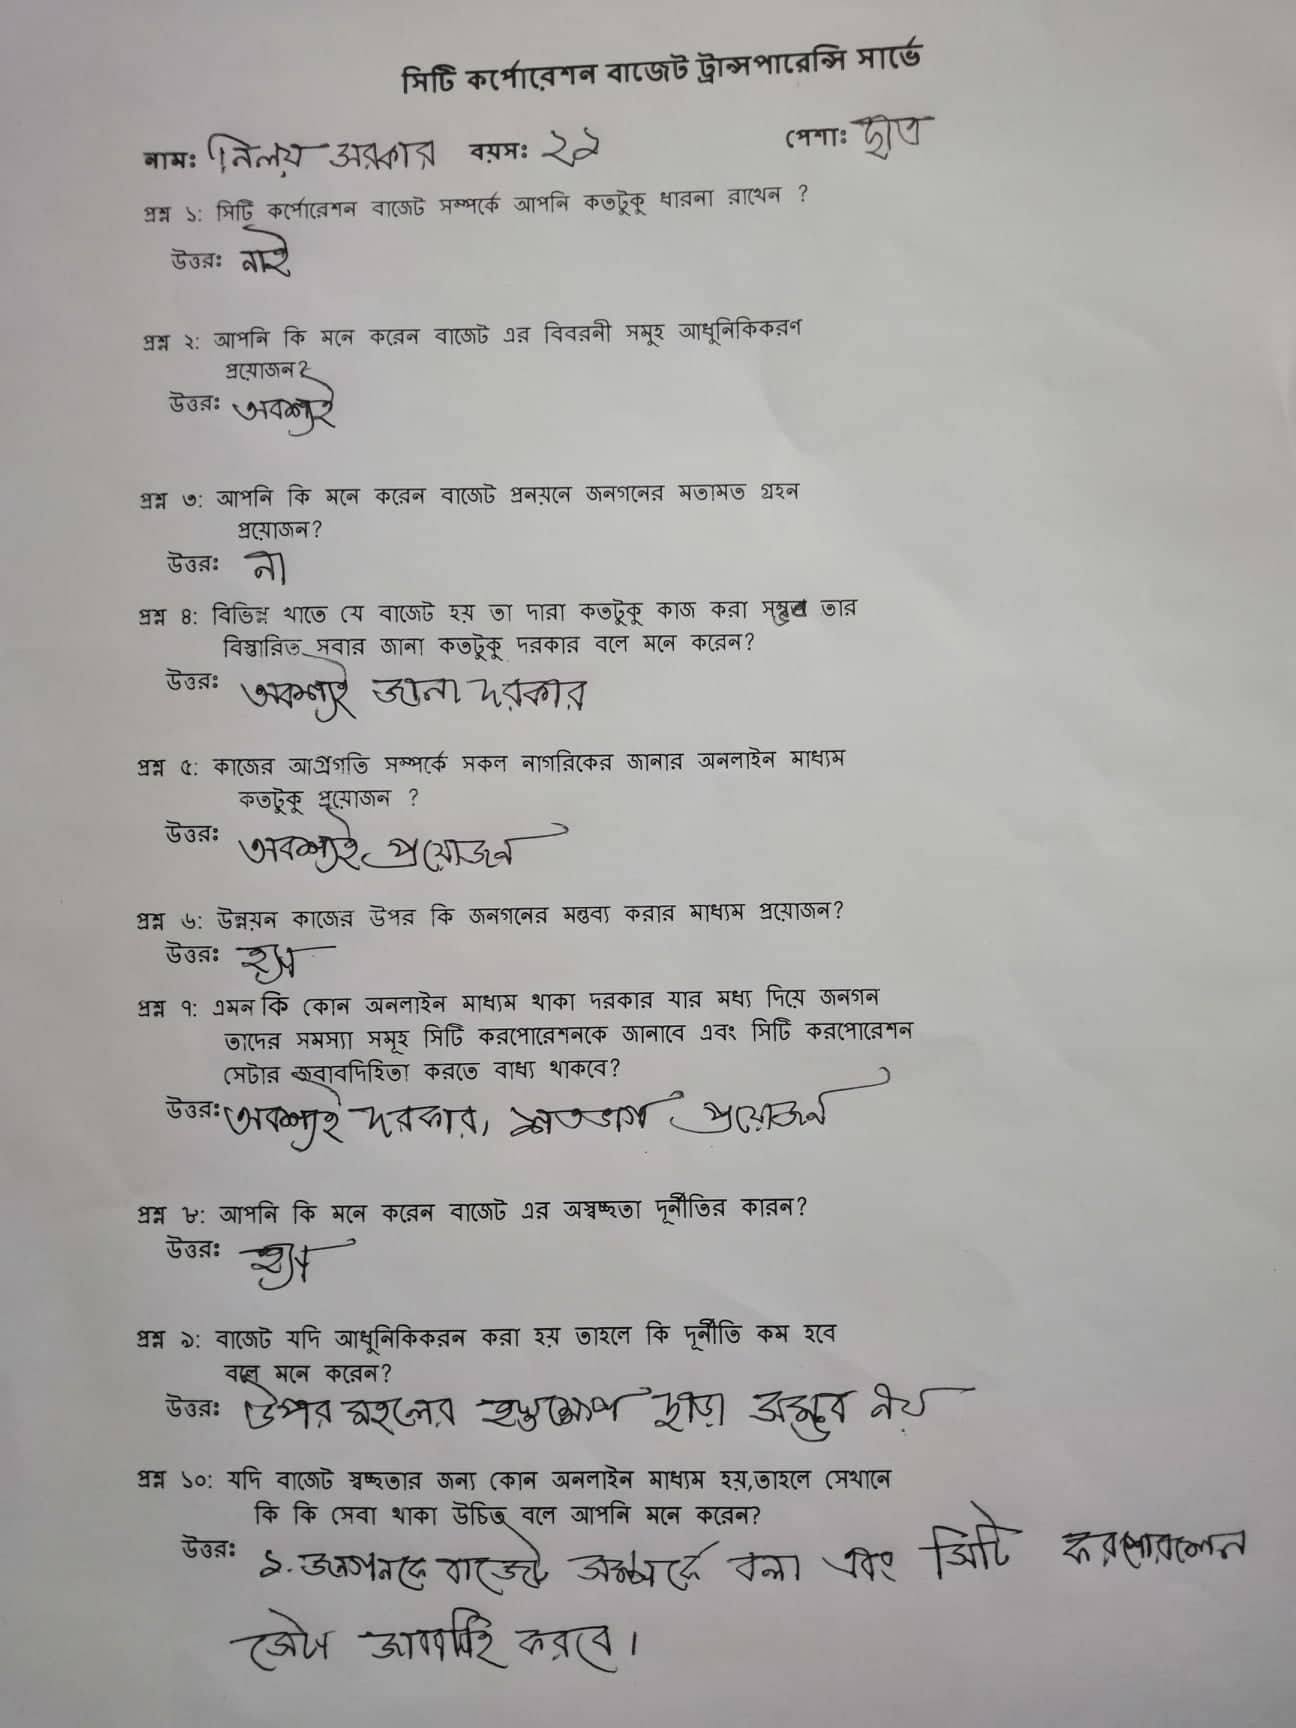 সিটি কর্পোরেশন বাজেট ট্রান্সপারেন্সি সার্ভে
নাম: নিলয় সরকার বয়স: ২১ পেশা: ছাত্র
প্রশ্ন ১: সিটি কর্পোরেশন বাজেট সম্পর্কে আপনি কতটুকু ধারনা রাখেন ?
উত্তর: নাই
প্রশ্ন ২: আপনি কি মনে করেন বাজেট এর বিবরনী সমূহ আধুনিকিকরণ
প্রয়োজন?
উত্তর: অবশ্যই
প্রশ্ন ৩: আপনি কি মনে করেন বাজেট প্রনয়নে জনগনের মতামত গ্রহন
প্রয়োজন?
উত্তর: না
প্রশ্ন ৪: বিভিন্ন খাতে যে বাজেট হয় তা দারা কতটুকু কাজ করা সম্ভব তার
বিস্তারিত সবার জানা কতটুকু দরকার বলে মনে করেন?
উত্তর: অবশ্যই জানা দরকার
প্রশ্ন ৫: কাজের আগ্রগতি সম্পর্কে সকল নাগরিকের জানার অনলাইন মাধ্যম
কতটুকু প্রয়োজন ?
উত্তর: অবশ্যই প্রয়োজন
প্রশ্ন ৬: উন্নয়ন কাজের উপর কি জনগনের মন্তব্য করার মাধ্যম প্রয়োজন?
উত্তর: হ্যা
প্রশ্ন ৭: এমন কি কোন অনলাইন মাধ্যম থাকা দরকার যার মধ্য দিয়ে জনগন
তাদের সমস্যা সমূহ সিটি করপোরেশনকে জানাবে এবং সিটি করপোরেশন
সেটার জবাবদিহিতা করতে বাধ্য থাকবে?
উত্তর: অবশ্যই দরকার, শতভাগ প্রয়োজন
প্রশ্ন ৮: আপনি কি মনে করেন বাজেট এর অস্বচ্ছতা দূর্নীতির কারন?
উত্তর: হ্যা
প্রশ্ন ৯: বাজেট যদি আধুনিকিকরন করা হয় তাহলে কি দূর্নীতি কম হবে
বলে মনে করেন?
উত্তর: উপর মহলের হস্তক্ষেপ ছাড়া সম্ভব নয়
প্রশ্ন ১০: যদি বাজেট স্বচ্ছতার জন্য কোন অনলাইন মাধ্যম হয়,তাহলে সেখানে
কি কি সেবা থাকা উচিত বলে আপনি মনে করেন?
উত্তর: ১. জনগনকে বাজেট সম্পর্কে বলা এবং সিটি
করবে।